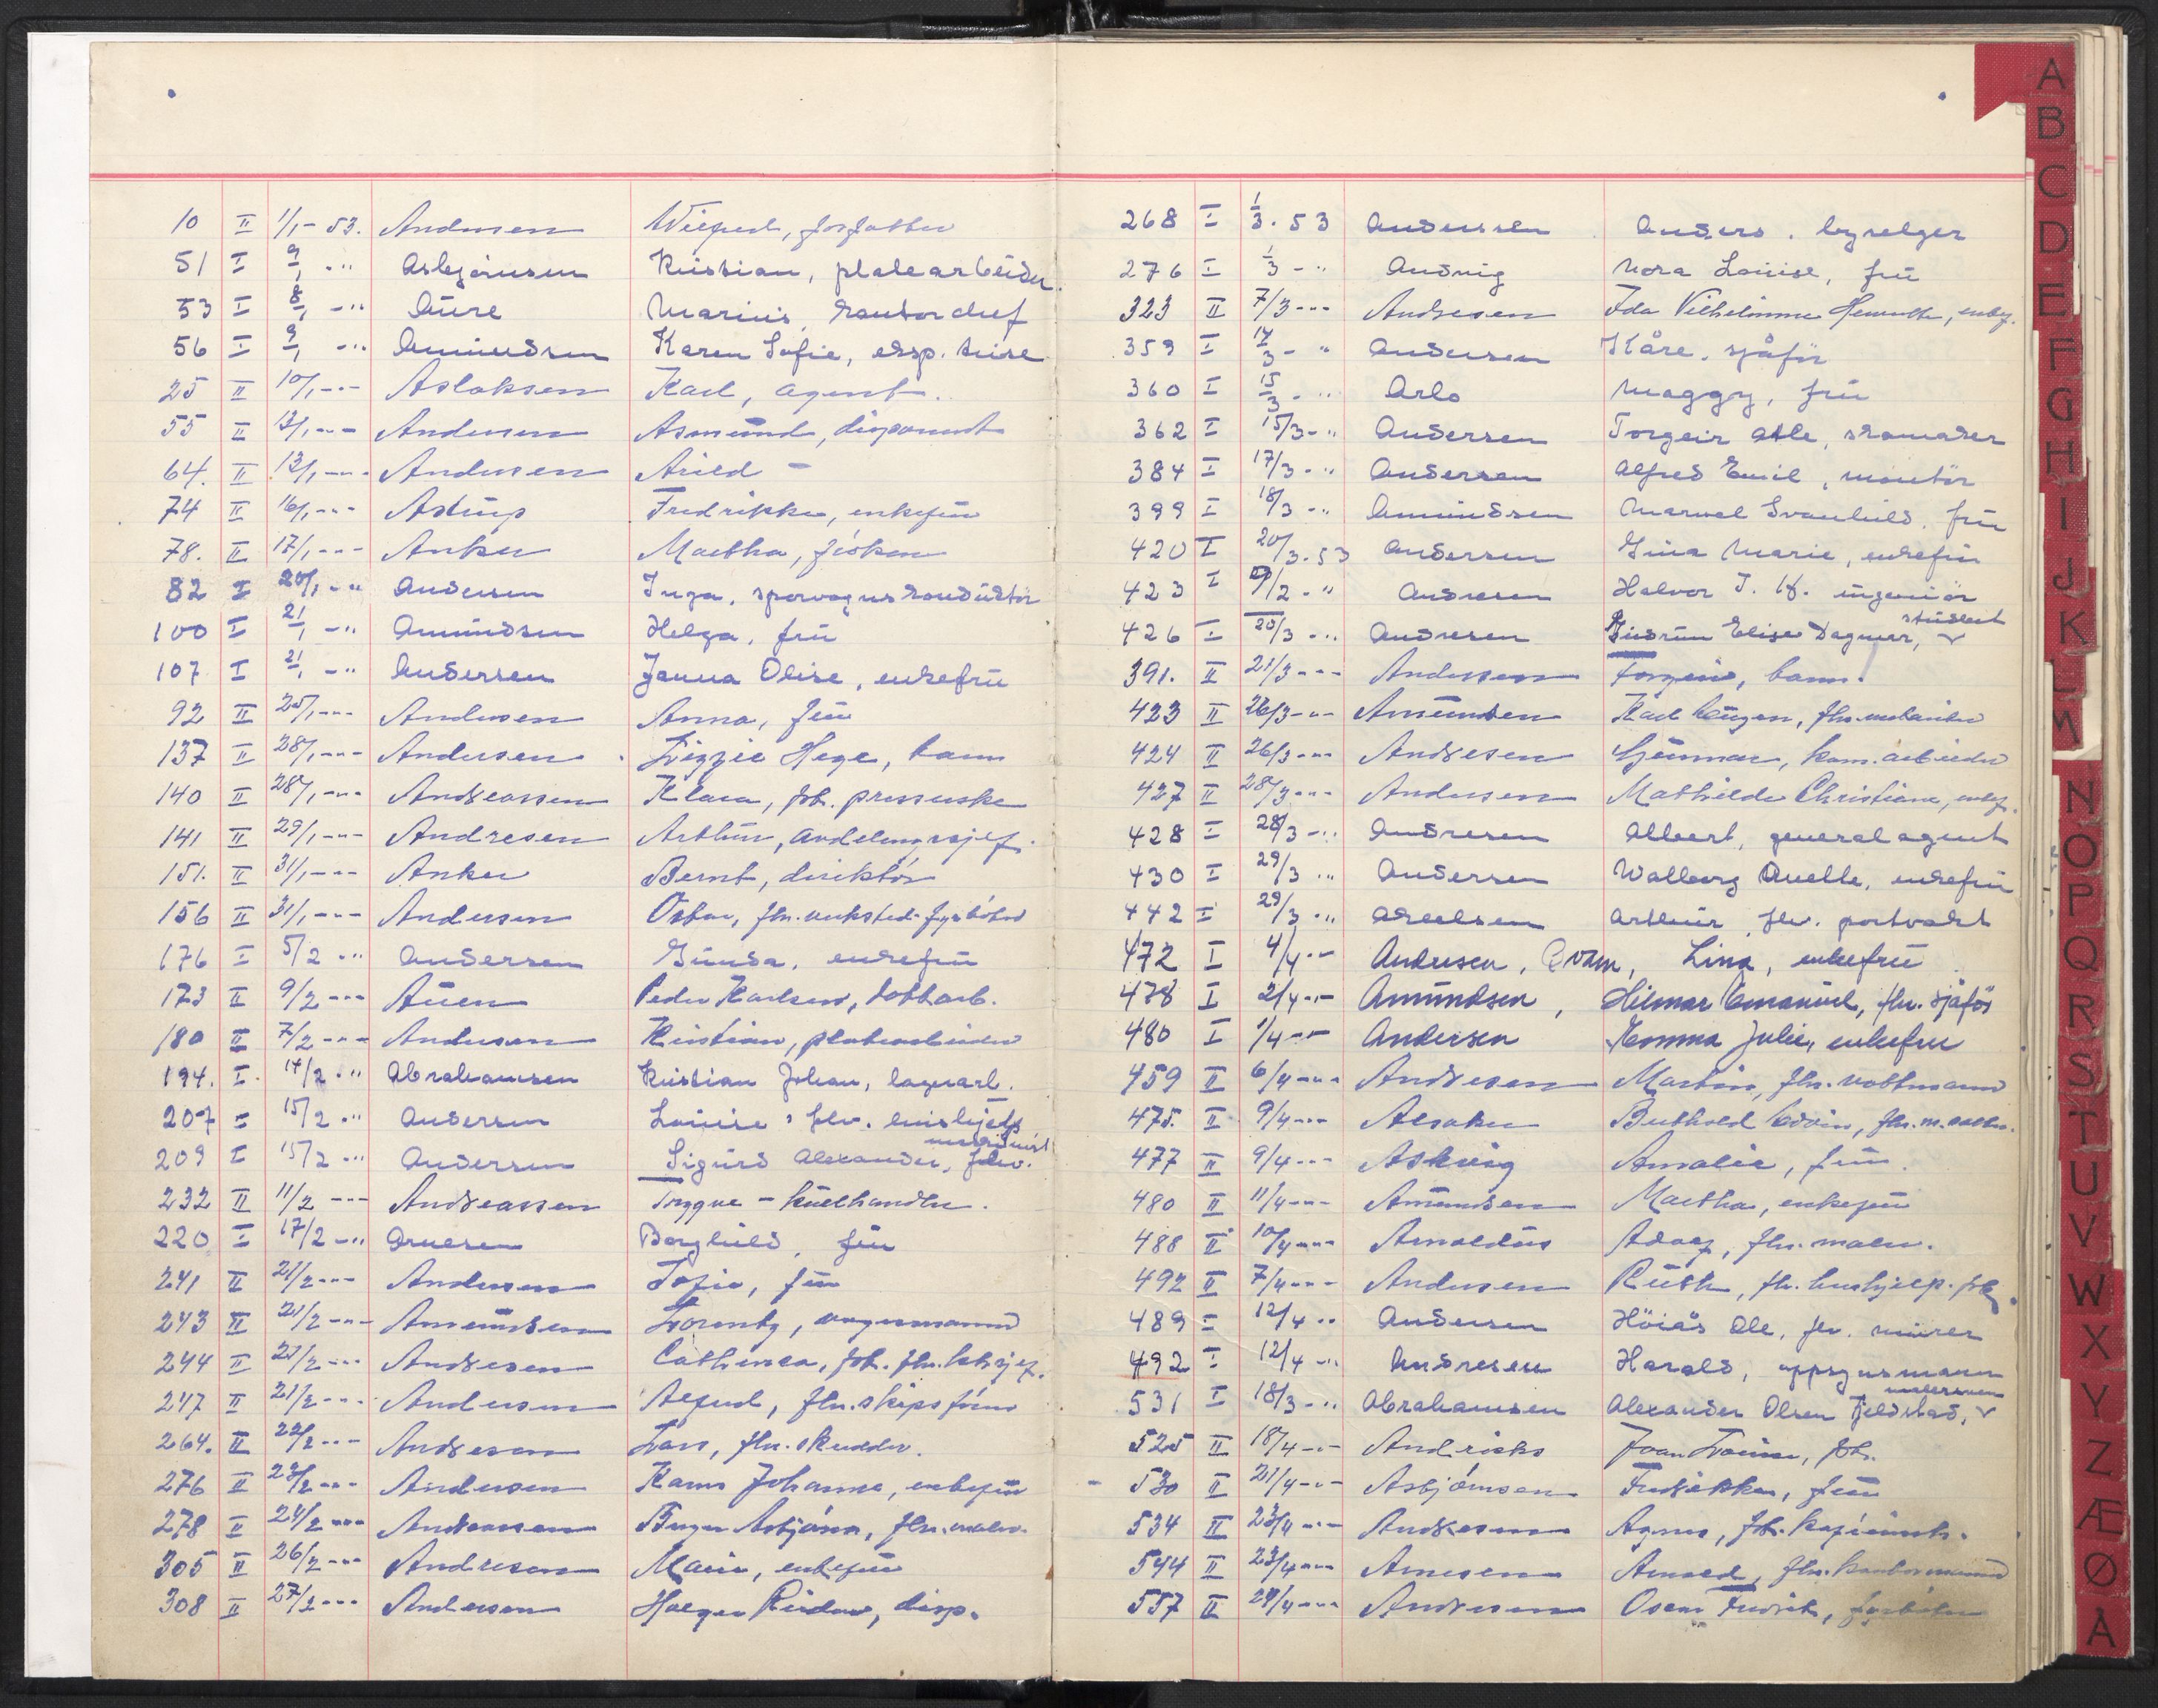 10 II 1/1 - 53. Andersen Wilfred, forfatter
51 I 9/1 - " Asbjörnsen Kristian, platearbeider.
53 I 8/1 - " Aure Marius, kontorchef
56 I 9/1 - " Amundsen Karen Sofie, eksp. trise
25 II 10/1 - " - Aslaksen Karl, agent.
55 II 12/1 - " - Andersen Asmund, disponent
64. II 13/1 - " - Andersen Arild -
74 II 16/1 - " - Astrup Fredrikke, enkefru
78. II 17/1 - " - Anker Martha, fröken
82 I 20/1 - " Andersen Inga, sporvognskonduktör
100 I 21/1 - " Amundsen Helga, fru
107 I 21/1 - " Andersen Janna Olise, enkefru
92 II 25/1 - " - Andersen Anna, fru
137 II 28/1 - " - Andersen Lizzie Hege, barn
140 II 28/1 - " - Andreassen Klara, frk. presserske
141 II 29/1 - " - Andresen Arthur, avdelingssjef.
151. II 31/1 - " - Anker Bernt, direktör
156 II 31/1 - " - Andersen Oskar, fhv. verksted-fyrböter
176 I 5/2 - " Andersen Gunda, enkefru
173 II 9/2 - " - Auen Peder Karlsen,
180 II 7/2 - " - Andersen Kristian, platearbeider
194. I 14/2 - " Abrahamsen Kristian Johan, lagerarb.
207 I 15/2 - " Andersen Louise, fhv. hushjelp
209 I 15/2 - " Andersen Sigurd Alexander, fhv.
232 II 11/2 - " - Andreassen Trygve - kullhandler.
220 I 17/2 - " Arnesen Borghild, fru
241 II 21/2 - " - Andersen Sofie, fru
243 II 21/2 - " - Amundsen Lorentz, vognmann
244 II 21/2 - " - Andresen Cathinca, frk. fhv.
247 II 21/2 - " - Andersen Alfred, fhv. skipsförer
264. II 22/2 - " - Andresen Lars, fhv. skredder.
276 II 23/2 - " - Andersen Karen Johanne, enkefru
278 II 24/2 - " - Andreassen Birger Asbjörn, fhv. maler.
305 II 26/2 - " - Andresen Marie, enkefru
308 II 27/2 - " - Andersen Holger Reidar, disp.
268 I 1/3. 53 Anderssen Anders. byselger
276 I 1/3 - " Andvig Nora Louise, fru
323 II 7/3 - " - Andresen Ida Vilhelmine Henriette, enkef.
359 I 14/3 - " Andersen Kåre, sjåför
360 I 15/3 - " Arlo Maggy, fru
362 I 15/3 - " Andersen Torgeir Atle, skomaker
384 I 17/3 - " Andersen Alfred Emil, montör
399 I 18/3 - " Amundsen Svanhild, fru
420 I 20/3. 53 Andersen Gina Marie, enkefru
423 I /2 - " Andresen Halvor J. H. ingeniör
426 I 20/3 - " Andresen Gudrun Elise Dagmar, student
391. II 21/3 - " - Andersen Torgeir, barn.
423 II 26/3 - " - Amundsen Karl Eugen, fhv. mekaniker
424 II 26/3 - " - Andresen Gunnar, kom. arbeider
427 II 28/3 - " - Andersen Mathilde Christiane, enkef.
428 I 28/3 - " Andresen Albert, generalagent
430 I 29/3 " Andersen Walborg Anette, enkefru
442 I 29/3 - " Axelsen Arthur, fhv. portvakt
472 I 4/4 - " Andresen, Qvam, Lina, enkefru
478 I 2/4 - " - Amundsen, Hilmar Emanuel, fhv. sjåför
480 I 1/4 - " Andersen Emma Julie, enkefru
459 II 6/4 - " - Andresen Martin, fhv. vaktmann
475. II 9/4 - " - Alsaker Berthold Edvin, fhv.
477 II 9/4 - " - Askvig Amalie, fru.
480 II 11/4 - " - Amundsen Martha, enkefru
488 II 10/4 - " - Arnoldus Adolf, fhv. maler.
492 II 7/4 - " - Andersen Ruth, fh. hushjelp. frk
489 I 12/4 " Andersen Höiås Ole, fhv. murer
492 I 12/4 - " Andresen Harald, oppsynsmann
531 I 18/3 - " Abrahamsen Alexander Olsen Fjeldstad, malersvenn
525 II 18/4 - " - Andrisks Joan Louise, frk.
530 II 21/4 - " - Asbjörnsen Fredrikke, fru
534 II 23/4 - " - Andresen Agnes, frk.
544 II 23/4 - " - Arnesen Arnold, fhv. kontormann
557 II 28/4 - " - Andresen Oscar Fredrik, fyrböter
A
B
C
D
E
F
G
H
I
J
K
M
N
O
P
Q
R
S
T
U
V
W
X
Y
Z
Æ
Ø
A